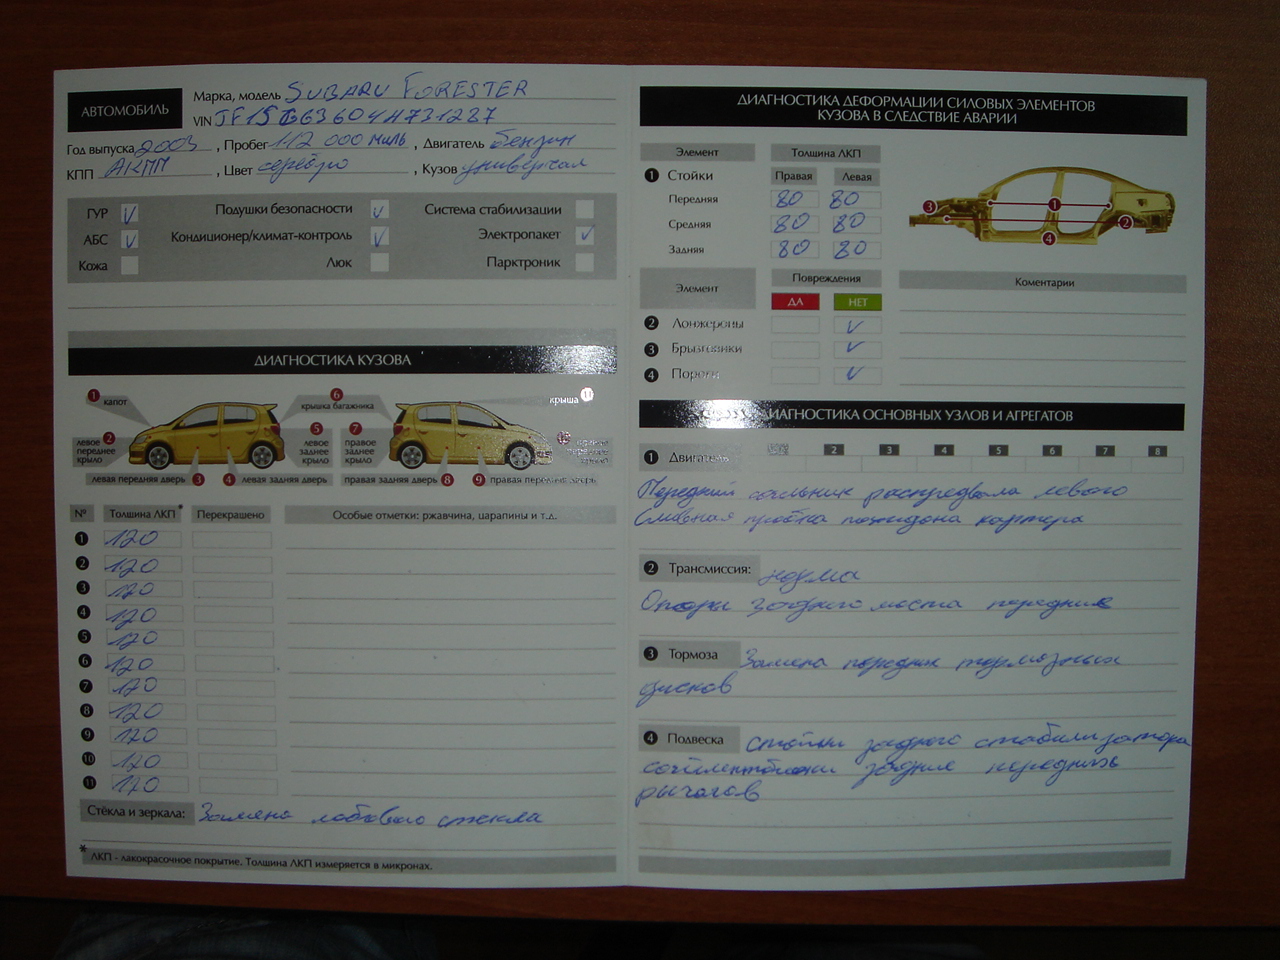 АВТОМОБИЛЬ
Марка, модель SUBARU FORESTER
VIN JF1SG63604H731287
Год выпуска 2003, Пробег 112 000 миль, Двигатель бензин
КПП АКПП, Цвет серебро, Кузов универсал
ГУР V Подушки безопасности V Система стабилизации
АБС V Кондиционер/климат-контроль V Электропакет V
Кожа Люк Парктроник
ДИАГНОСТИКА КУЗОВА
1 капот
6 крышка багажника
крыша 11
2 левое переднее крыло
5 левое заднее крыло
7 правое заднее крыло
правое переднее крыло
левая передняя дверь 3 4 левая задняя дверь правая задняя дверь 8 9 правая передняя дверь
№ Толщина ЛКП* Перекрашено Особые отметки: ржавчина, царапины и т.д.
1 120
2 120
3 120
4 120
5 120
6 120
7 120
8 120
9 120
10 120
11 120
Стёкла и зеркала: Замена лобового стекла
* ЛКП - лакокрасочное покрытие. Толщина ЛКП измеряется в микронах.
ДИАГНОСТИКА ДЕФОРМАЦИИ СИЛОВЫХ ЭЛЕМЕНТОВ
КУЗОВА В СЛЕДСТВИЕ АВАРИИ
Элемент Толщина ЛКП
1 Стойки Правая Левая
Передняя 80 80
Средняя 80 80
Задняя 80 80
3 1 2 4
Элемент Повреждения Коментарии
ДА НЕТ
2 Лонжероны V
3 Брызговики V
4 Пороги V
ДИАГНОСТИКА ОСНОВНЫХ УЗЛОВ И АГРЕГАТОВ
1 Двигатель 2 3 4 5 6 7 8
Передний сальник распредвала левого
сливная пробка поддона картера
2 Трансмиссия: норма
Опоры заднего моста передние
3 Тормоза Замена передних тормозных
дисков
4 Подвеска стойки заднего стабилизатора
сайлентблоки задние передних
рычагов